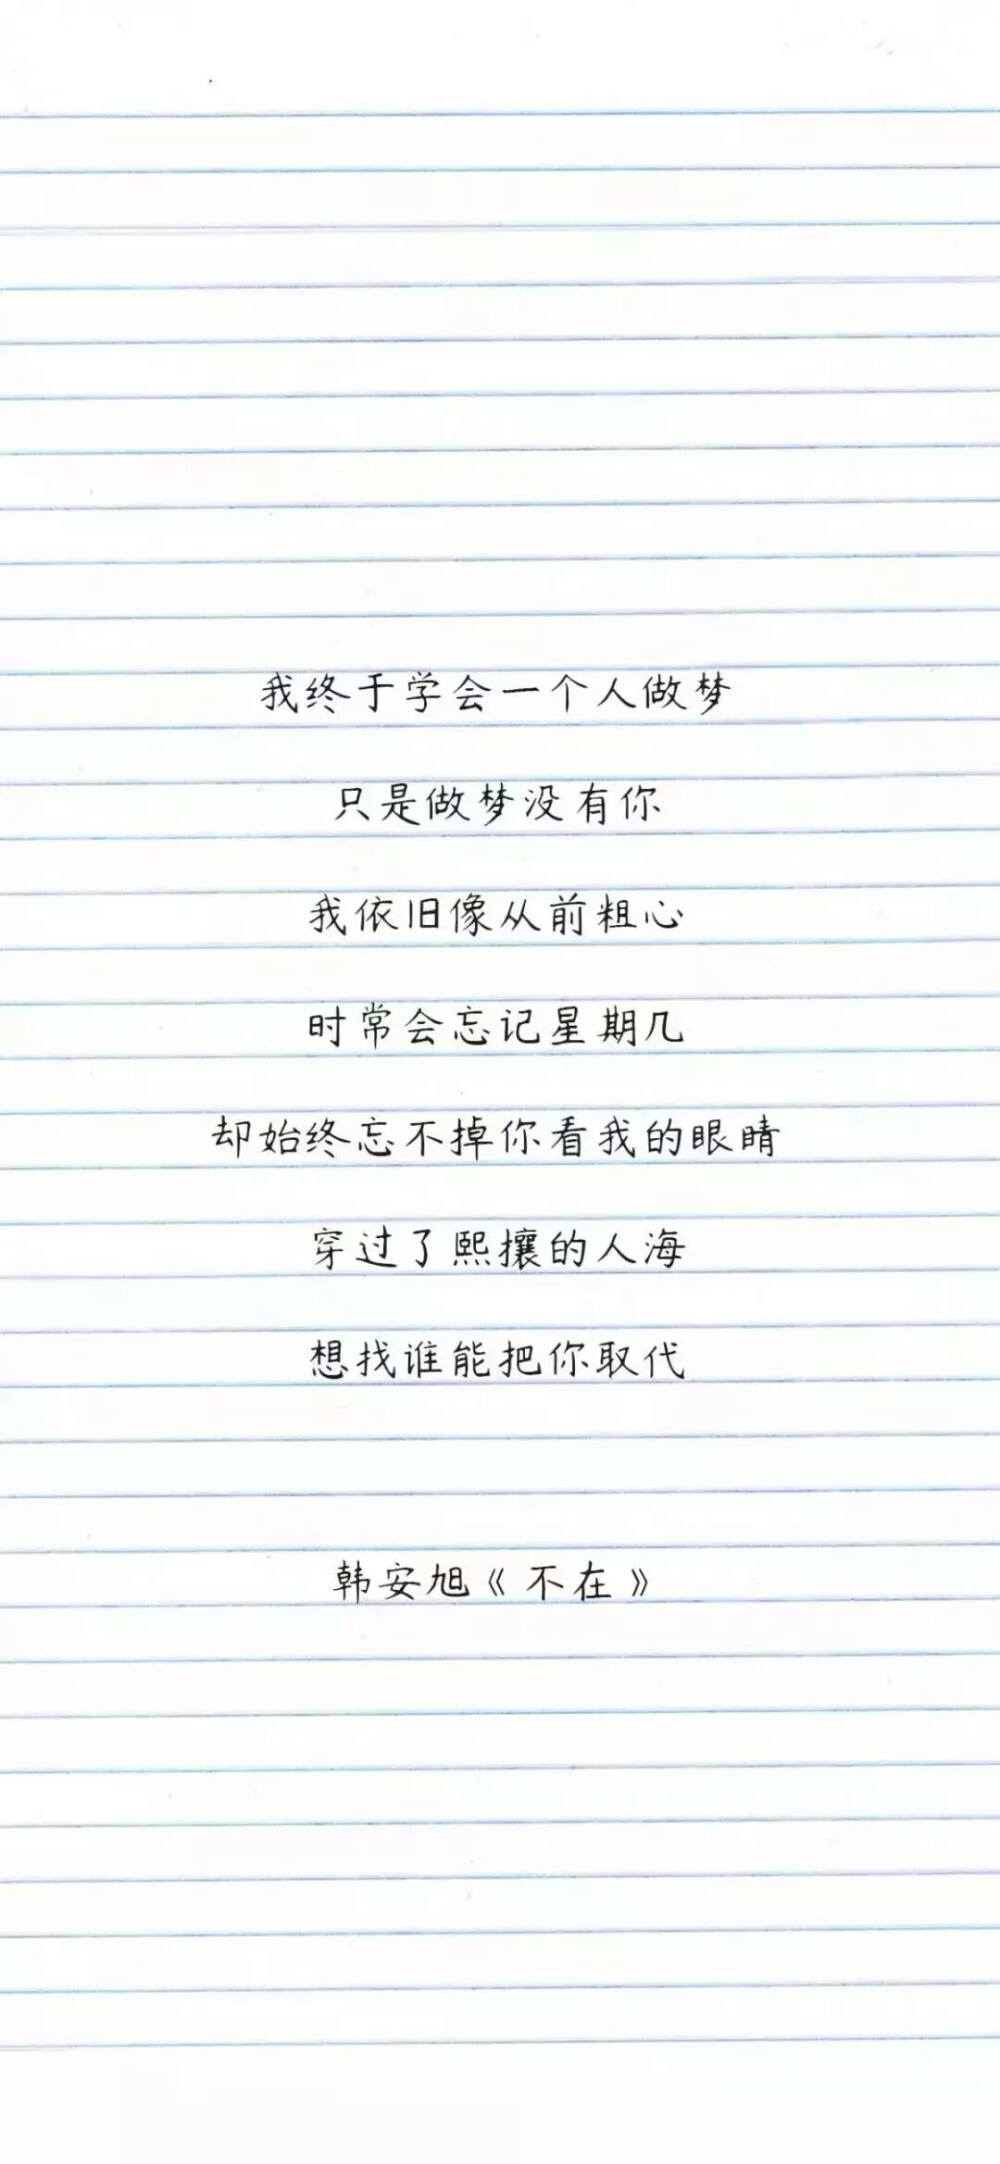 我终于学会一个人做梦
只是做梦没有你
我依旧像从前粗心
时常会忘记星期几
却始终忘不掉你看我的眼睛
穿过了熙攘的人海
想找谁能把你取代
韩安旭《不在》